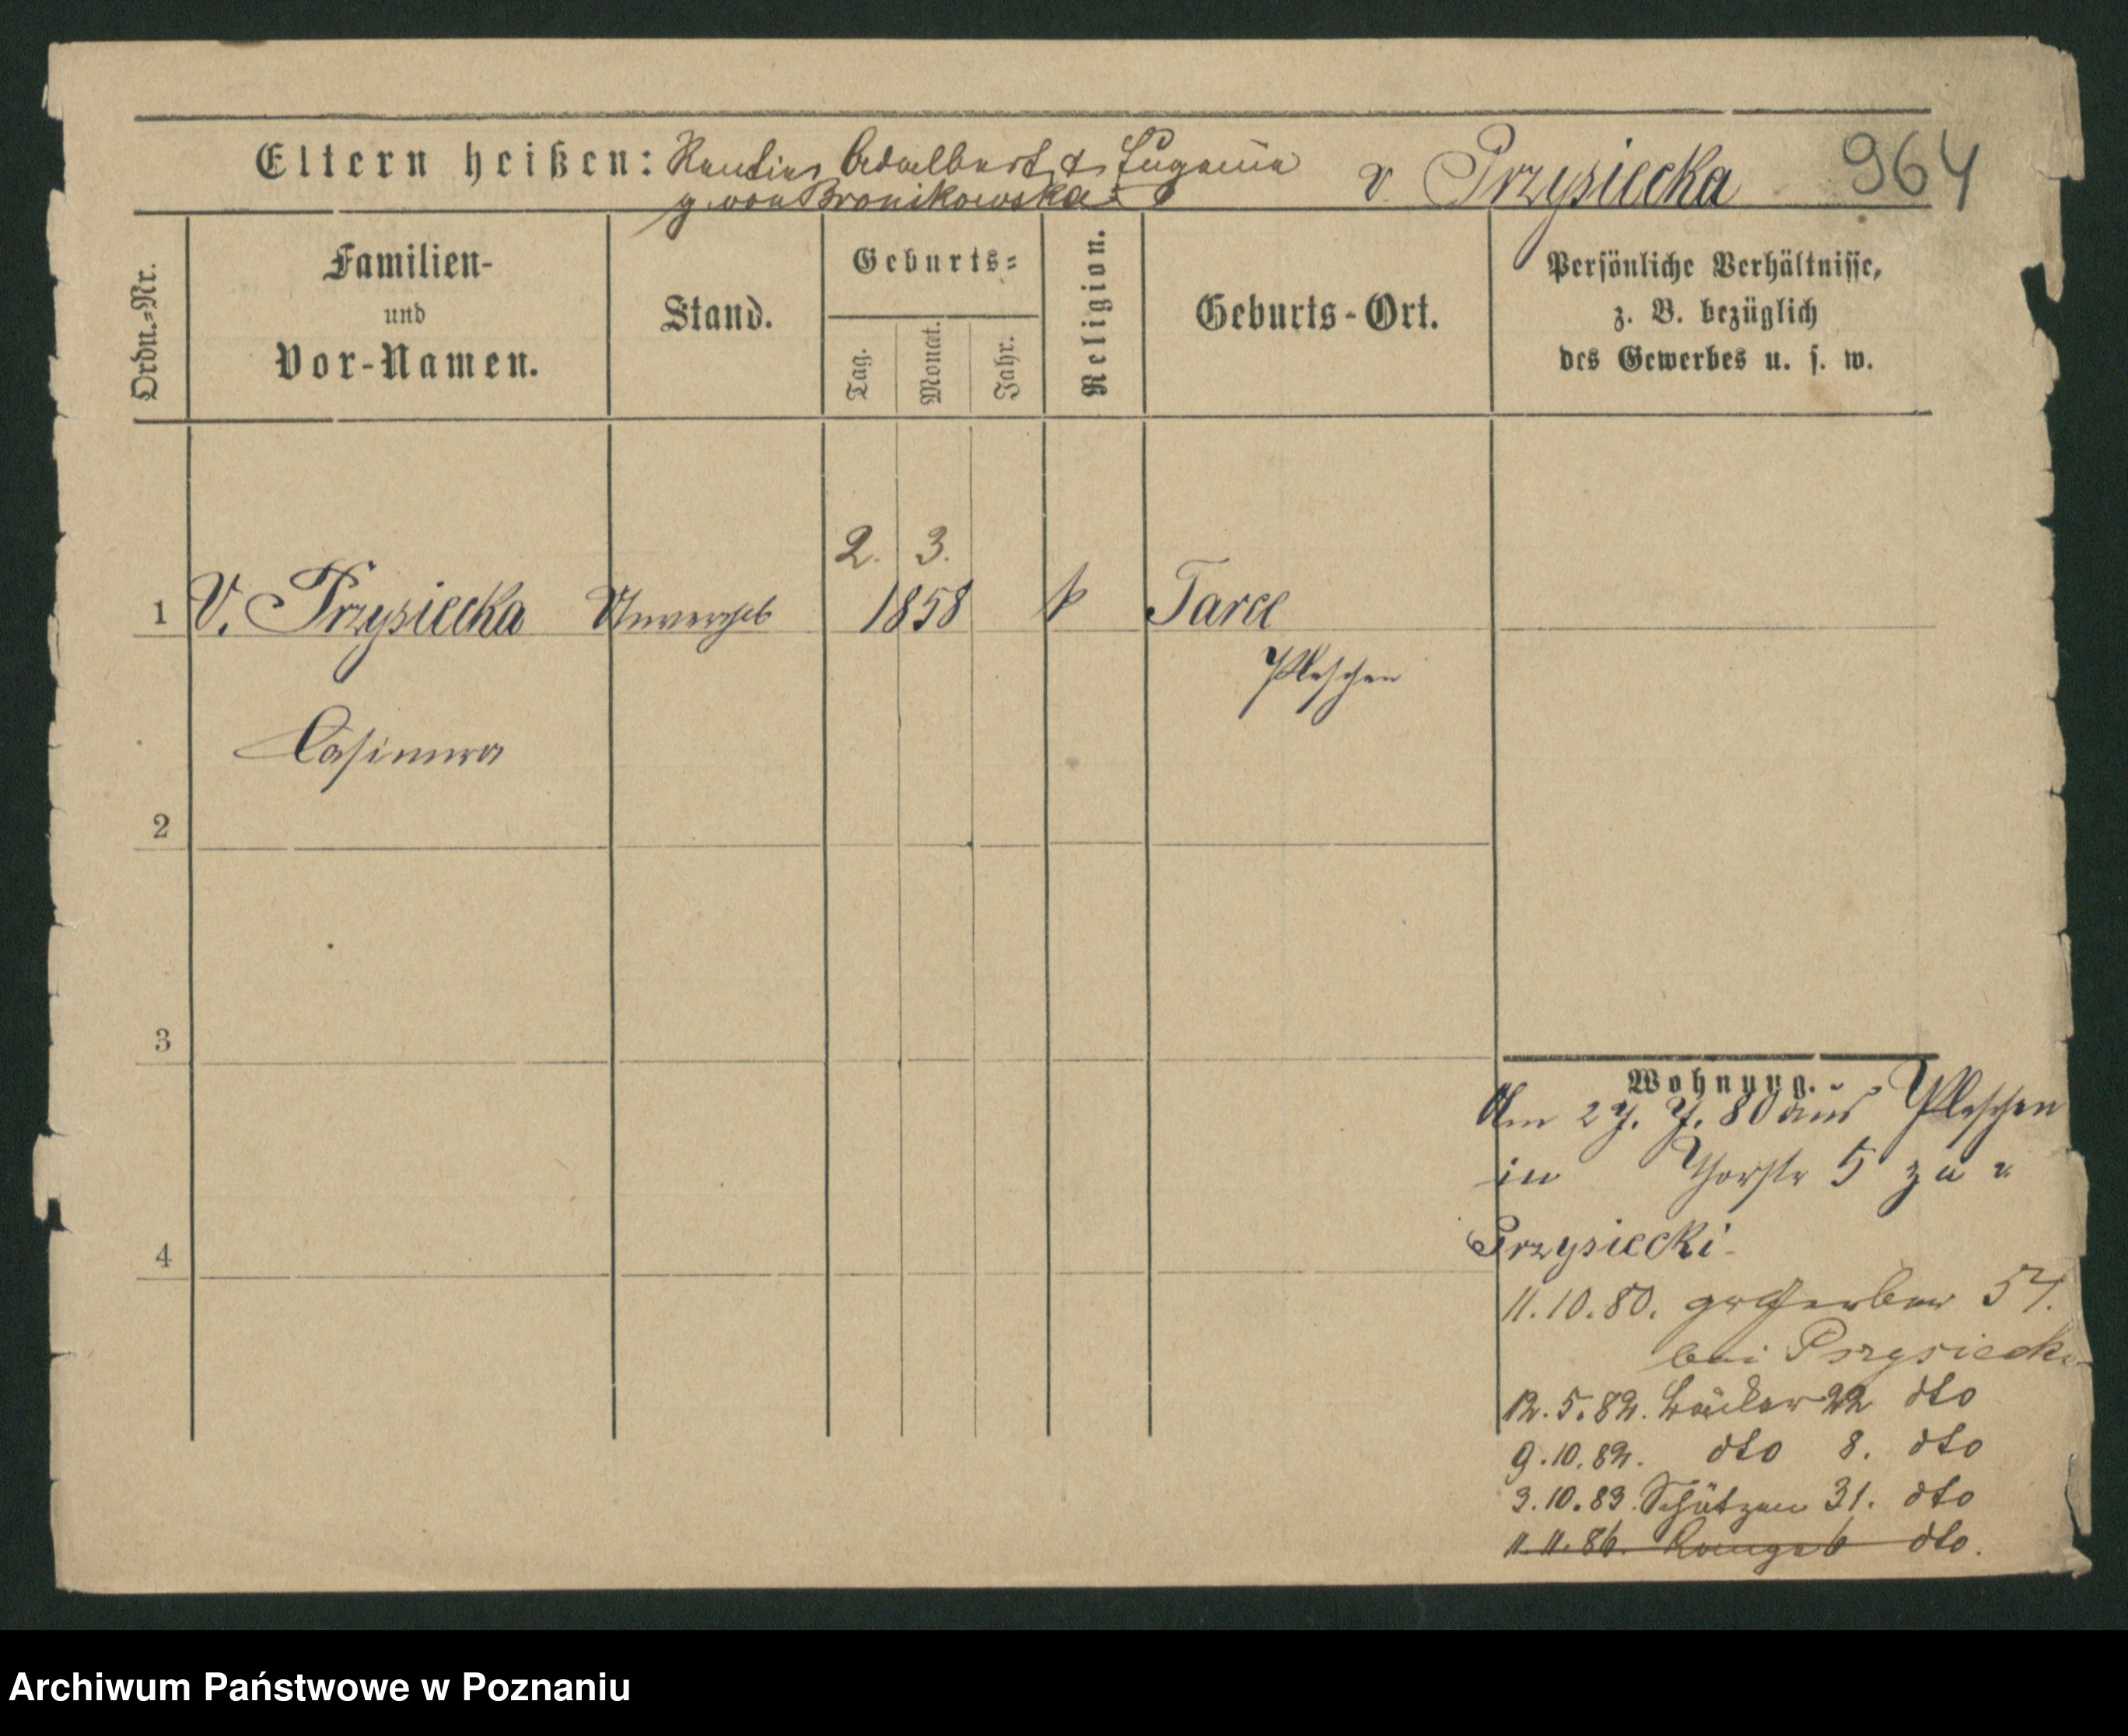 Eltern heißen: Rentier Adalbert & Eugenia v Przysiecka 964
g. von Bronikowska
Ordn.=Nr.
Familien-
und
Vor-Namen.
Stand.
Geburts=
Tag.
Monat.
Jahr.
Religion.
Geburts-Ort.
Persönliche Verhältnisse,
z. B. bezüglich
des Gewerbes u. s. w.
2. 3.
1 V. Przysiecka Unvereh 1858 k Tarce
Pleschen
Casimira
2
3
Wohnung.
Am 27. 7. 80 aus Pleschen
in Thorstr 5 zu v
Przysiecki
4
11.10.80. grGerber 54.
bei Przysiecki
12.5.82. Bäcker 22 dto
9.10.82. dto 8. dto
3.10.83. Schützen 31. dto
11.11.86. 6 dto.
Archiwum Państwowe w Poznaniu